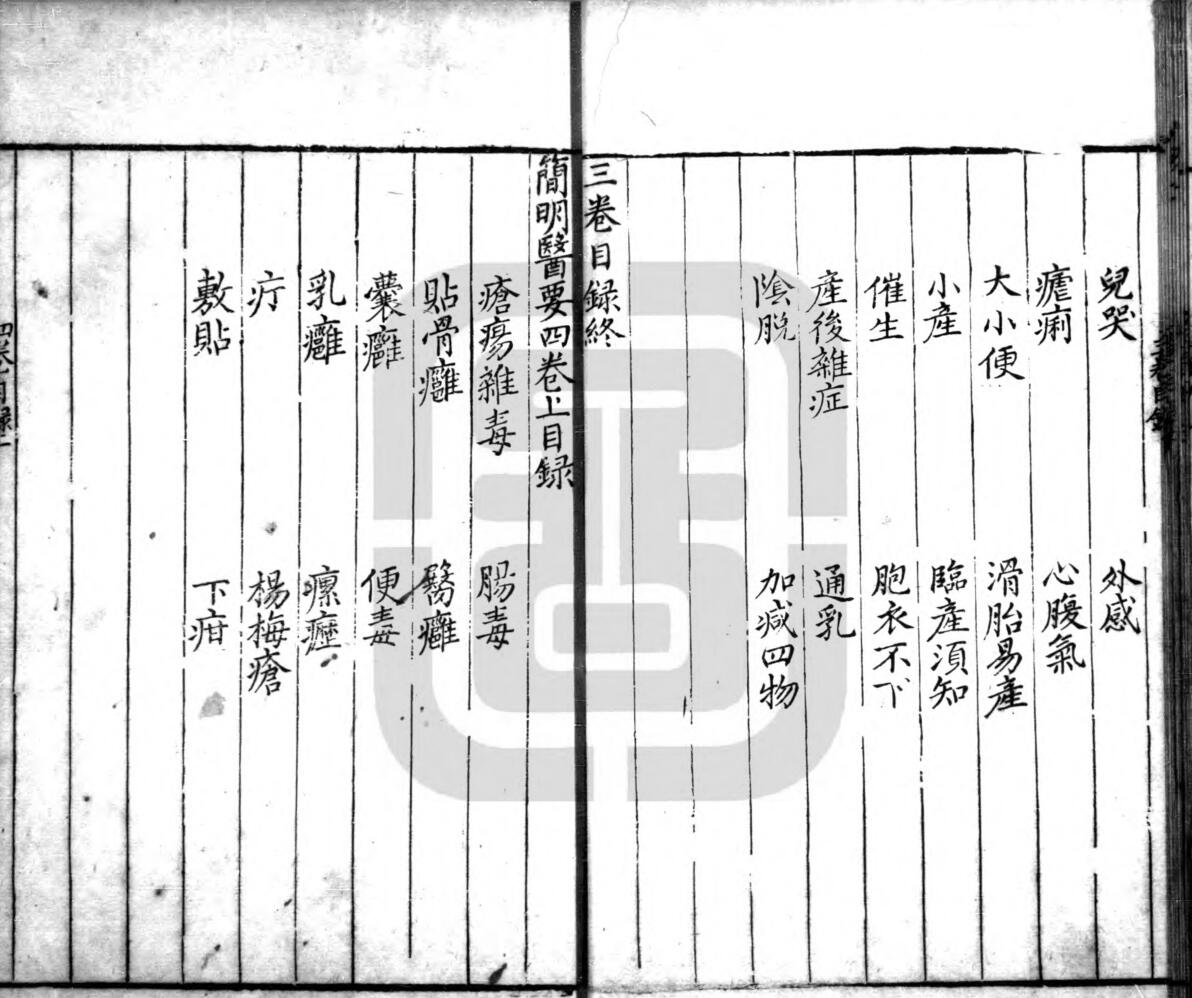 兒哭　外感
瘧痢　心腹氣
大小便　滑胎易產
小產　臨產須知
催生　胞衣不下
產後雜症　通乳
陰脫　加減四物
三卷目録終
簡明醫要四卷上目録
瘡瘍雜毒　腸毒
貼骨癰　臀癰
囊癰　便毒
乳癰　瘰癧
疔　楊梅瘡
敷貼　下疳
四卷目録上